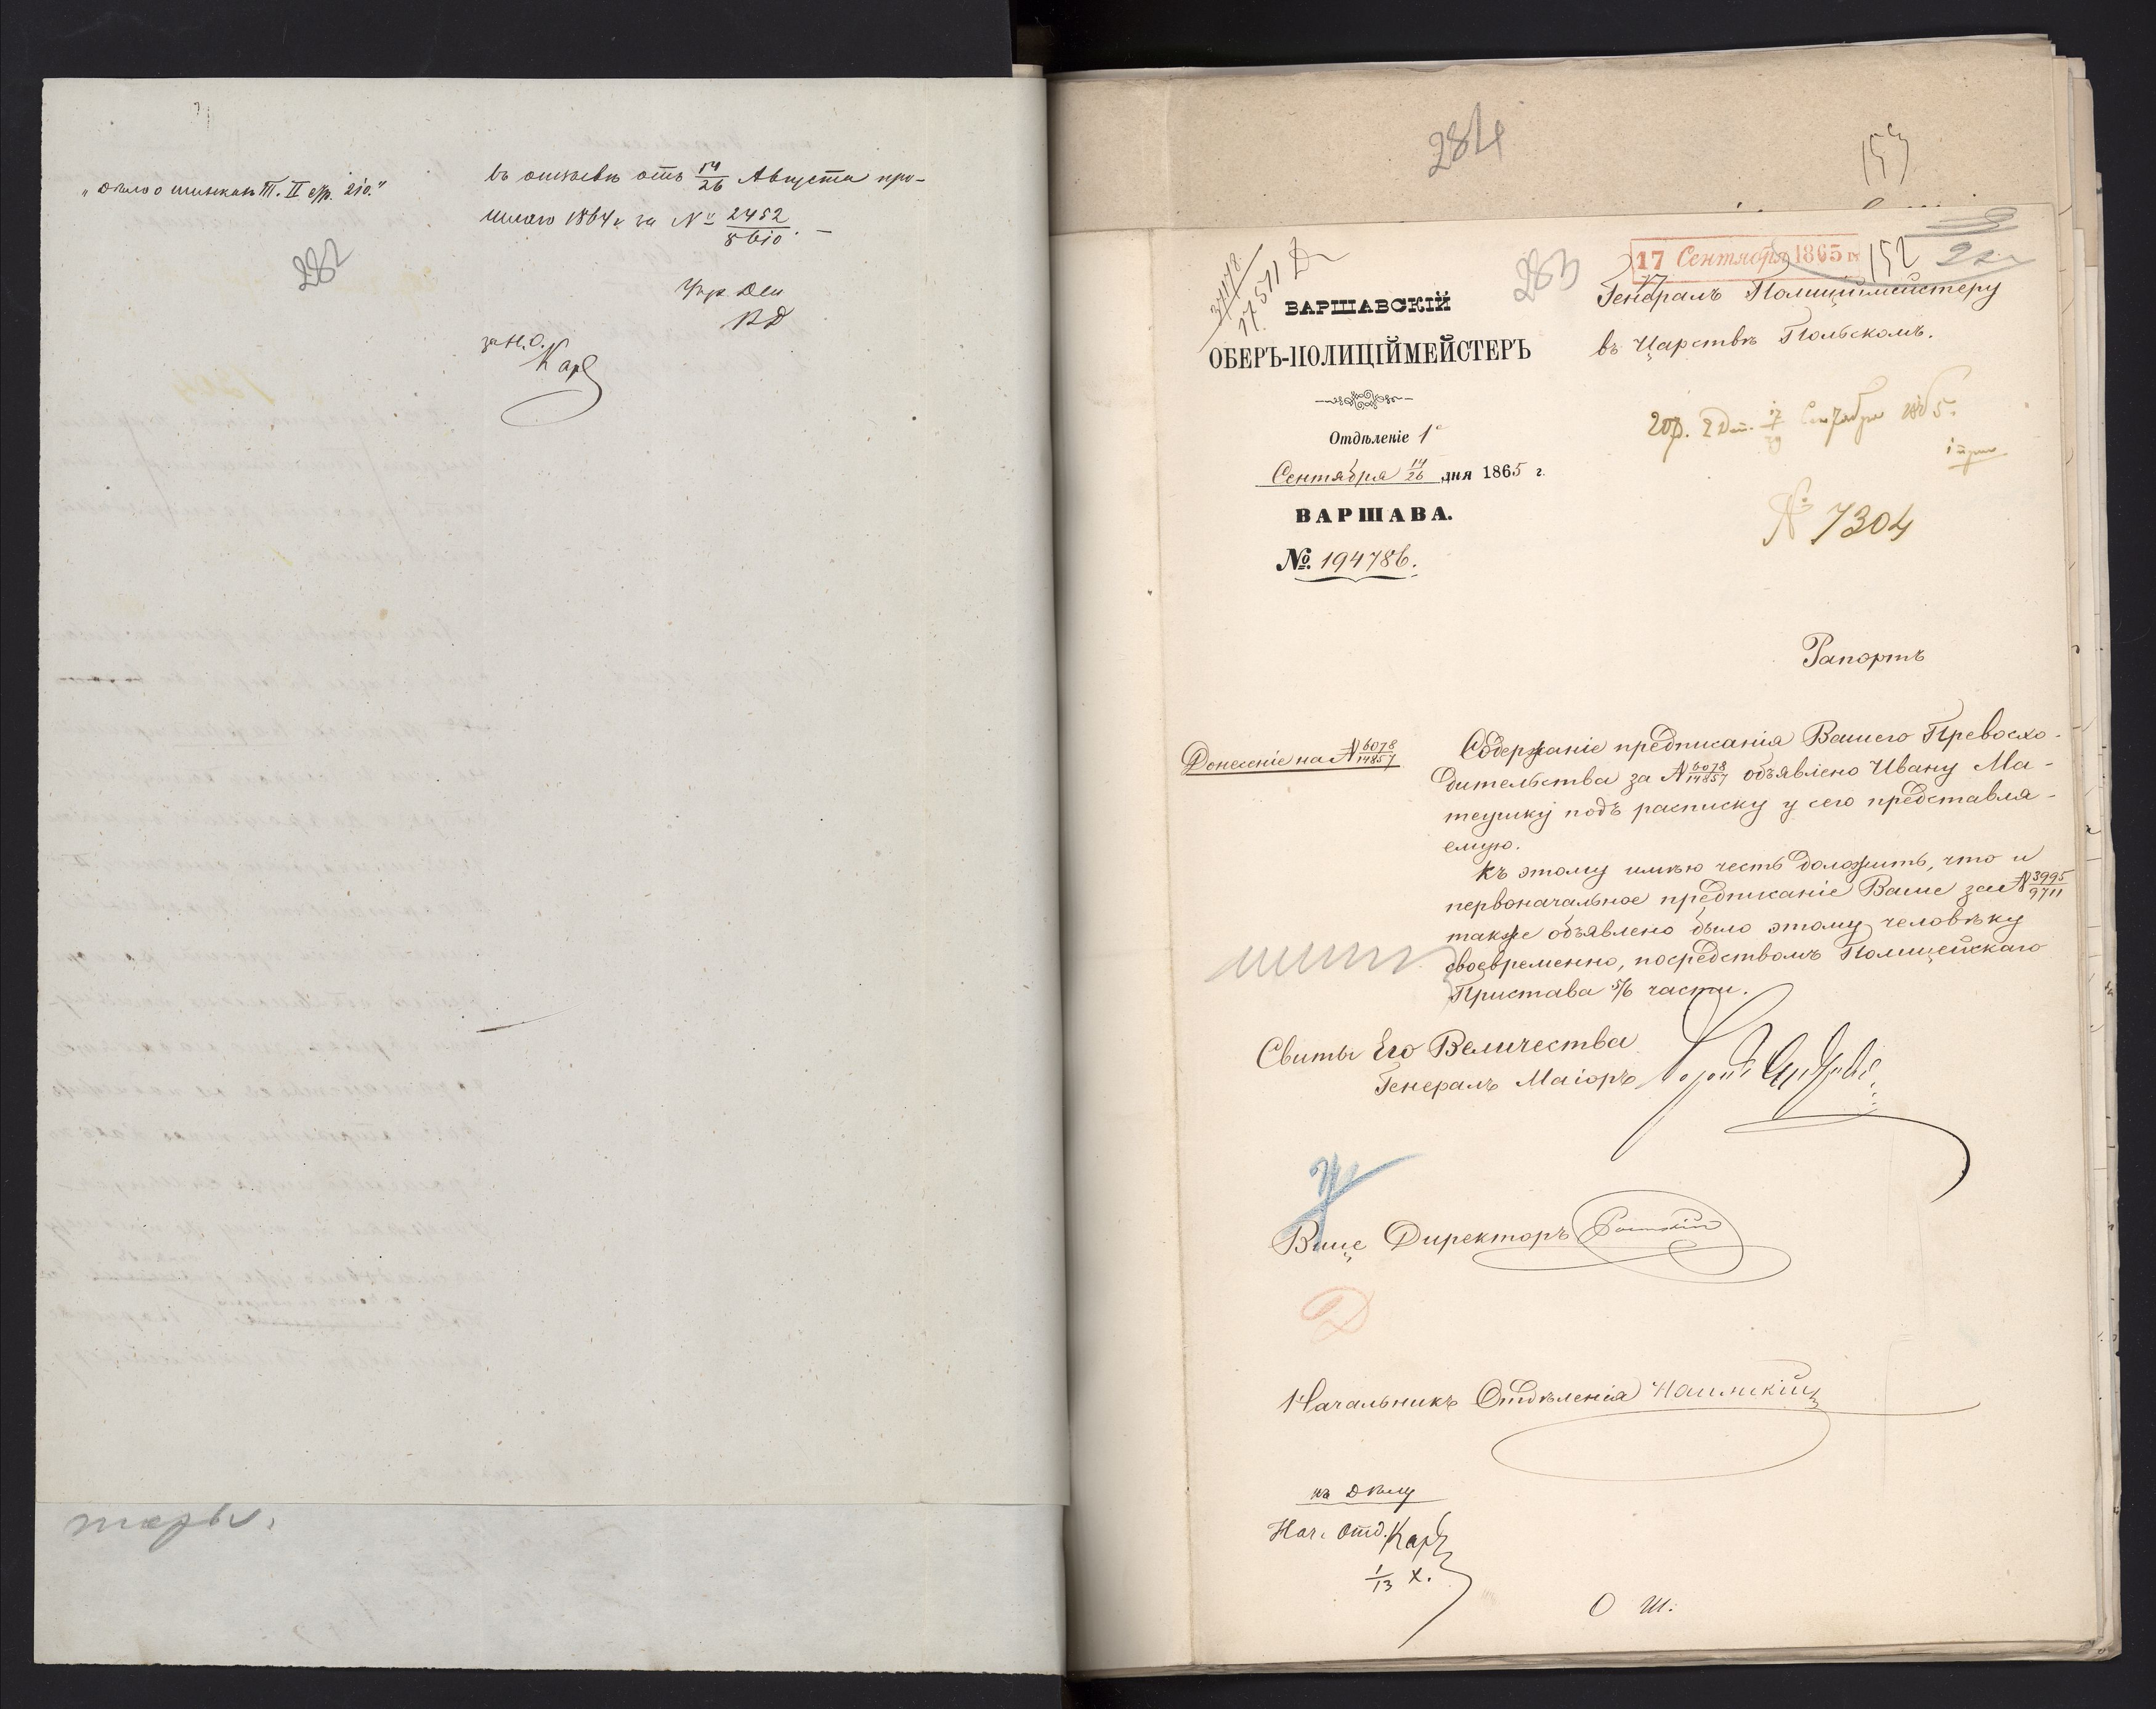 „Дѣло о шинкахъ Т. II стр. 210."
282
въ отзывѣ отъ 14/26 Августа про-
шлаго 1864 г. за № 2452/8610. –
за Н. О.
Кар
тоже
284
153
17 Сентября 1865 г.
152
283
17511
ВАРШАВСКІЙ
ОБЕРЪ-ПОЛИЦІЙМЕЙСТЕРЪ
Отдѣленіе 1е
Сентября 14/26 дня 1865 г.
ВАРШАВА.
№ 194786.
Генералъ Полиціймейстеру
въ Царствѣ Польскомъ.
17/29 Сентября 1865.
№ 7304
Рапортъ
Донесеніе на № 6078/14857
Содержаніе предписанія Вашего Превосхо-
дительства за № 6078/14857 объявлено Ивану Ма-
теушку подъ расписку у сего представля-
емую.
Къ этому имѣю честь доложить, что и
первоначальное предписаніе Ваше за № 3995/9711
также объявлено было этому человѣку
своевременно, посредствомъ Полицейскаго
Пристава 5/6 части.
Свиты Его Величества
Генералъ Маіоръ
Вице Директоръ
Начальникъ Отдѣленія
къ дѣлу
Нач. Отд. Кар
1/13 X.
О Ш.